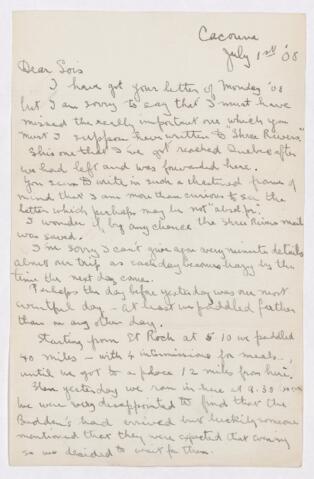 Cacouna
July 1st '08
Dear Lois
I have got your letter of Monday '08
but I am sorry to say that I must have
missed the really important one which you
must I suppose have written to "Three Rivers".
This one that I've got reached Quebec after
we had left and was forwarded here.
You seem to write in such a chastened frame of
mind that I am more than curious to see the
letter which perhaps may be not
I wonder if by any chance the Three Rivers mail
was saved.
I'm sorry I can't give you very minute details
about our trip as each day becomes hazy by the
time the next day comes.
Perhaps the day before yesterday was our most
eventful day - at least we paddled farther
than on any other day.
Starting from St Roch at 5 10 we paddled
40 miles - with 4 intermissions for meals,
until we got to a place 12 miles from here.
Then yesterday we ran in here at 9.30
We were very disappointed to find that the
had arrived but luckily someone
mentioned that they were expected that evening
so we decided to wait for them.